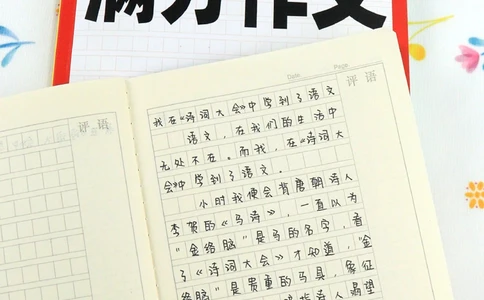 满分作文
评语
Date
Page
评语
我在《诗词大会》中学到了语文
语文，在我们的生活中
无处不在。而我，在《诗词大
会》中学到了语文。
小时我便会背唐朝诗人
李贺的《马诗》，一直以为
“金络脑”是马的名字，看
了《诗词大会》才知道，“金
络脑”是贵重的马具，象征
诗人渴望